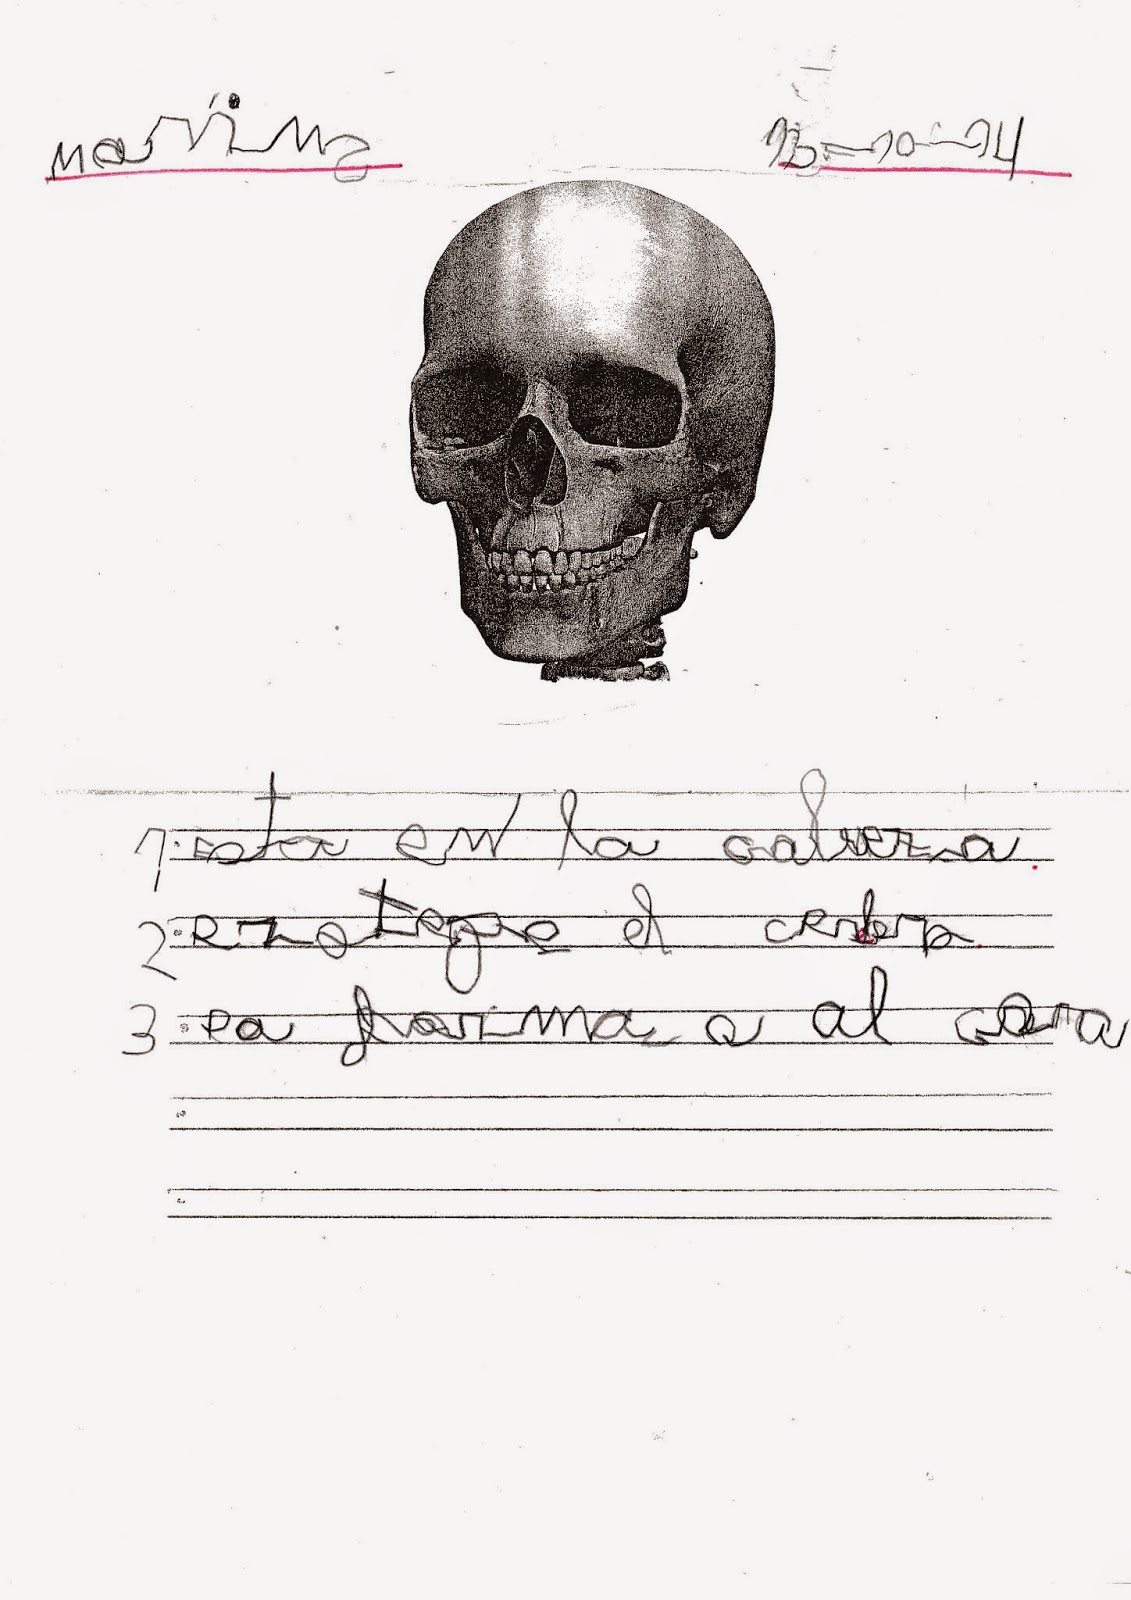 13-10-14
1. esta en la cabeza.
2. protege el cerebro.
3. da forma a al cara